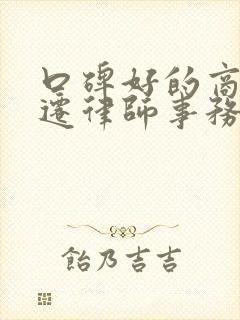 口碑好的商
遷律師事務
飴乃吉吉